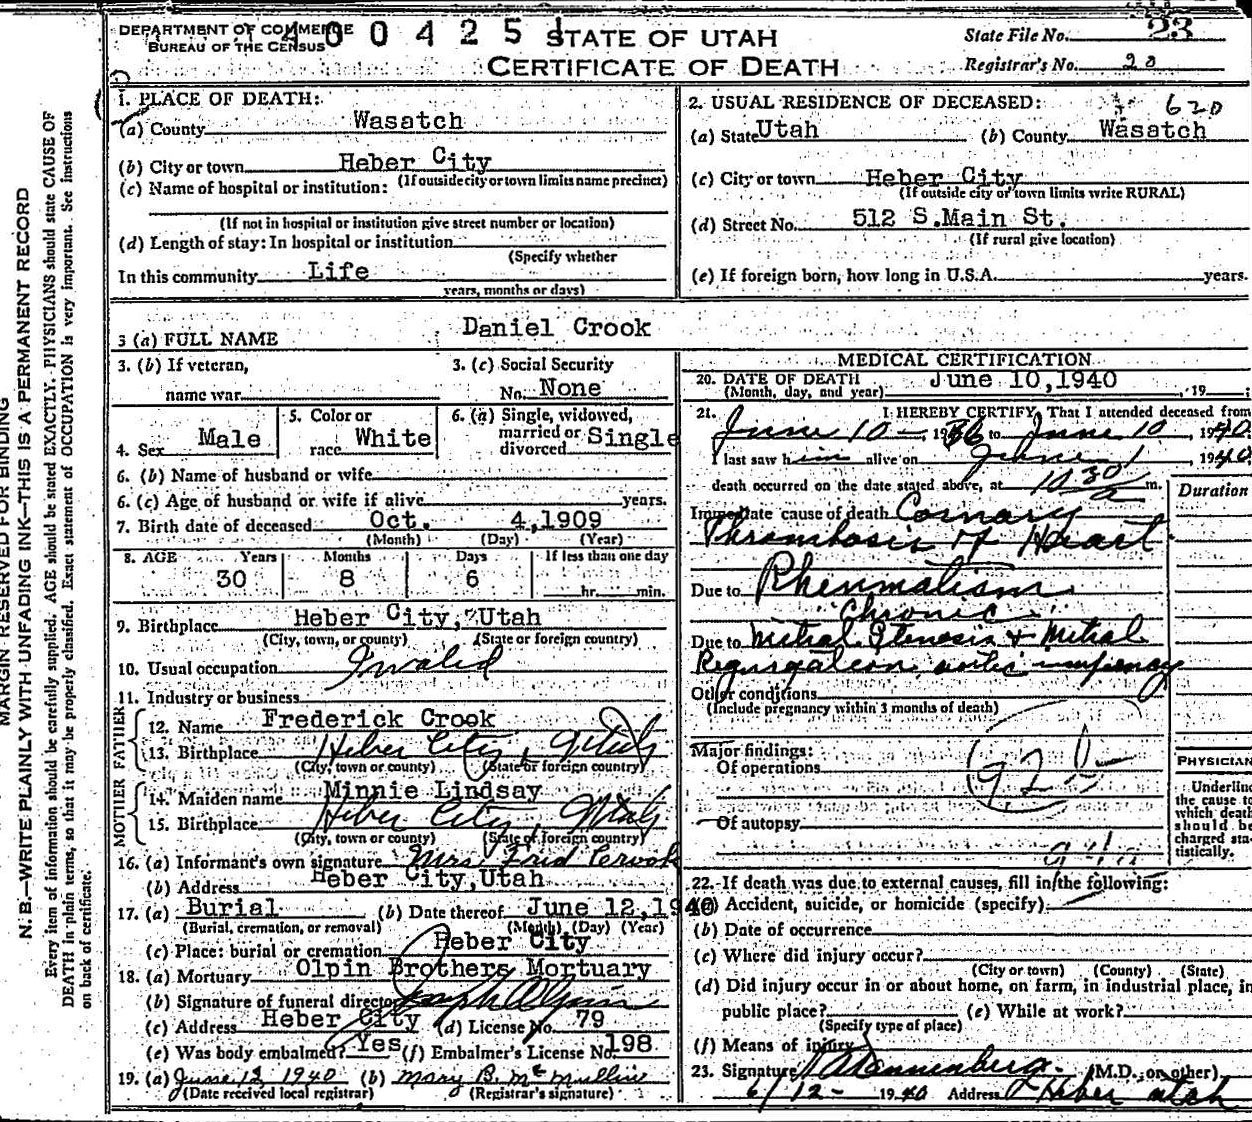 DEPARTMENT OF COMMERCE
BUREAU OF THE CENSUS
400425
STATE OF UTAH
CERTIFICATE OF DEATH
State File No. 23
Registrar's No. 20
1. PLACE OF DEATH:
(a) County Wasatch
(b) City or town Heber City
(If outside city or town limits name precinct)
(c) Name of hospital or institution:
(If not in hospital or institution give street number or location)
(d) Length of stay: In hospital or institution
(Specify whether
In this community Life
years, months or days)
2. USUAL RESIDENCE OF DECEASED: 620
(a) State Utah (b) County Wasatch
(c) City or town Heber City
(If outside city or town limits write RURAL)
(d) Street No. 512 S.Main St.
(If rural give location)
(e) If foreign born, how long in U.S.A. years.
3 (a) FULL NAME Daniel Crook
3. (b) If veteran,
name war
3. (c) Social Security
No. None
4. Sex Male
5. Color or
race White
6. (a) Single, widowed,
married or
divorced Single
6. (b) Name of husband or wife
6. (c) Age of husband or wife if alive years.
7. Birth date of deceased Oct. 4,1909
(Month) (Day) (Year)
8. AGE Years Months Days If less than one day
30 8 6 hr. min.
9. Birthplace Heber City, Utah
(City, town, or county) (State or foreign country)
10. Usual occupation Invalid
11. Industry or business
FATHER
12. Name Frederick Crook
13. Birthplace Heber City, Utah
(City, town or county) (State or foreign country)
MOTHER
14. Maiden name Minnie Lindsay
15. Birthplace Heber City, Utah
(City, town or county) (State or foreign country)
16. (a) Informant's own signature Mrs Fred Crook
(b) Address Heber City,Utah
17. (a) Burial (b) Date thereof June 12,1940
(Burial, cremation, or removal) (Month) (Day) (Year)
(c) Place: burial or cremation Heber City
18. (a) Mortuary Olpin Brothers Mortuary
(b) Signature of funeral director Joseph Olpin
(c) Address Heber City (d) License No. 79
(e) Was body embalmed? Yes (f) Embalmer's License No. 198
19. (a) June 12 1940 (b) Mary B. McMullin
(Date received local registrar) (Registrar's signature)
MEDICAL CERTIFICATION
20. DATE OF DEATH June 10,1940, 19
(Month, day, and year)
21. I HEREBY CERTIFY, That I attended deceased from
June 10 -, 1936 to June 10, 1940.
I last saw him alive on June 1 1940
death occurred on the date stated above, at 10 30 a m.
Duration
Immediate cause of death Cornary
Thrombosis of Heart
Due to Rheumatism
"Chronic"
Due to Mitral Stenosis & Mitral
Regurgation,
Other conditions
(Include pregnancy within 3 months of death)
Major findings:
Of operations
92 b
Of autopsy
94a
PHYSICIAN
Underline
the cause to
which death
should be
charged sta-
tistically.
22. If death was due to external causes, fill in the following:
(a) Accident, suicide, or homicide (specify)
(b) Date of occurrence
(c) Where did injury occur?
(City or town) (County) (State)
(d) Did injury occur in or about home, on farm, in industrial place, in
public place? (e) While at work?
(Specify type of place)
(f) Means of injury
23. Signature (M.D., or other)
6/12- 1940 Address Heber Utah
MARGIN RESERVED FOR BINDING
N. B.—WRITE PLAINLY WITH UNFADING INK—THIS IS A PERMANENT RECORD
Every item of information should be carefully supplied. AGE should be stated EXACTLY. PHYSICIANS should state CAUSE OF
DEATH in plain terms, so that it may be properly classified. Exact statement of OCCUPATION is very important. See instructions
on back of certificate.